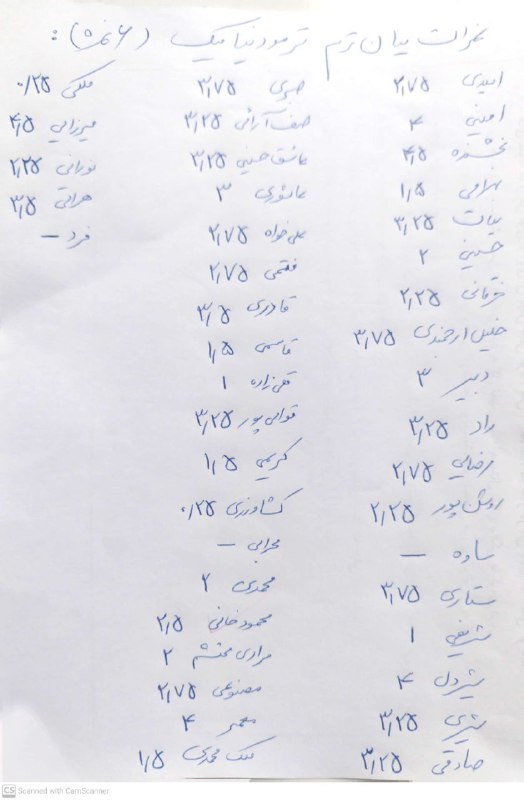 نمرات میان ترم ترمودینامیک (۶ نمره):
امیدی ۲٫۷۵
امینی ۴
بخشنده ۴٫۵
بهرامی ۱٫۵
بیات ۳٫۲۵
حسینی ۲
خرقانی ۲٫۲۵
خلیل ارجمندی ۳٫۷۵
دبیر ۳
راد ۳٫۲۵
رضایی ۲٫۷۵
روشن پور ۲٫۲۵
ساوه —
ستاری ۳٫۷۵
شریفی ۱
شیردل ۴
شیری ۳٫۲۵
صادقی ۳٫۲۵
صبری ۳٫۷۵
صف آرائی ۳٫۲۵
عاشق حسینی ۳٫۲۵
عاشوری ۳
علی خواه ۲٫۷۵
فتحی ۲٫۷۵
قادری ۳٫۵
قاسمی ۱٫۵
قلی زاده ۱
قوامی پور ۳٫۲۵
کریمی ۱٫۵
کشاورزی ۰٫۲۵
محرابی —
محمدی ۲
محمودخانی ۲٫۵
مرادی محتشم ۲
مصنوعی ۲٫۷۵
معمر ۴
ملک محمدی ۱٫۵
ملکی ۰٫۲۵
میرزایی ۴٫۵
نورانی ۲٫۲۵
هراتی ۳٫۵
فرد —
CS Scanned with CamScanner